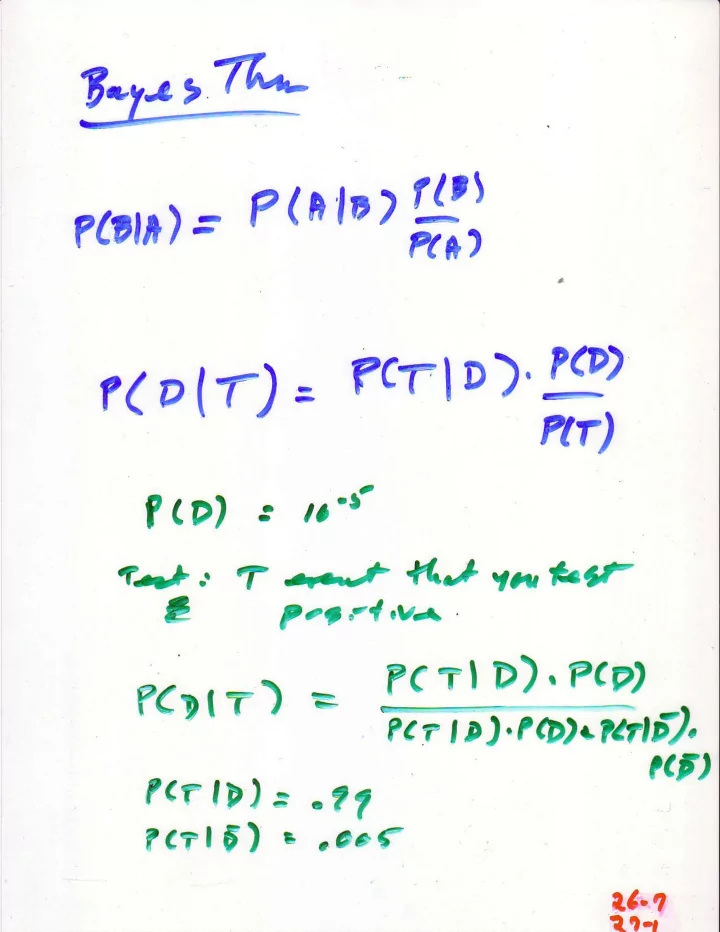 Bayes Thm
P(B|A) = P(A|B) P(B)/P(A)
P(D|T) = P(T|D) · P(D)/P(T)
P(D) = 10^-5
Test: T event that you test
positive
P(D|T) = P(T|D) · P(D) / P(T|D)·P(D) + P(T|D̄)·
P(D̄)
P(T|D) = .99
P(T|D̄) = .005
26-7